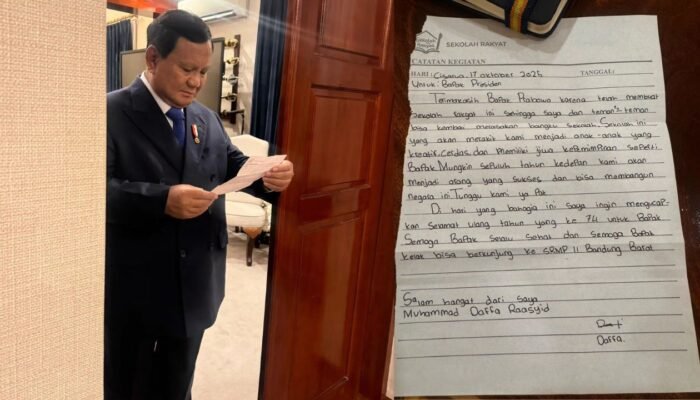 SEKOLAH RAKYAT
CATATAN KEGIATAN
HARI : Cisarua, 17 Oktober 2025 TANGGAL:
Untuk: Bapak Presiden
Terimakasih Bapak Prabowo karena telah membuat
sekolah rakyat ini sehingga saya dan teman²teman
bisa kembali merasakan bangku sekolah. Sekolah ini
yang akan merakit kami menjadi anak-anak yang
kreatif, cerdas, dan memiliki jiwa kepemimpinan seperti
Bapak. Mungkin sepuluh tahun kedepan kami akan
menjadi orang yang sukses dan bisa membangun
negara ini. Tunggu kami ya Pak
Di hari yang bahagia ini saya ingin mengucap-
kan selamat ulang tahun yang ke 74 untuk Bapak
Semoga Bapak selalu sehat dan semoga Bapak
kelak bisa berkunjung ke SRMP 11 Bandung Barat
Salam hangat dari saya
Muhammad Daffa Raasyid
Daffa.